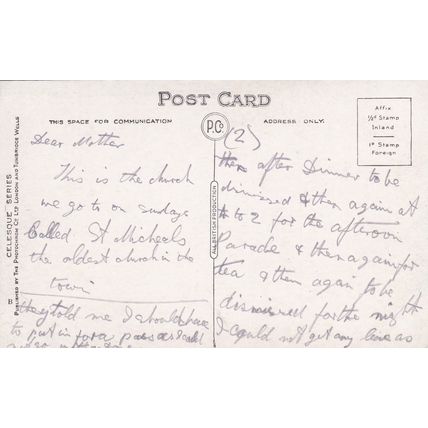 POST CARD
THIS SPACE FOR COMMUNICATION
P.Co
ADDRESS ONLY.
Affix
½d Stamp
Inland
1d Stamp
Foreign
CELESQUE SERIES
PUBLISHED BY THE PHOTOCHROM CO LTD LONDON AND TUNBRIDGE WELLS
ALL BRITISH PRODUCTION
B
Dear Mother
This is the church
we go to on sundays
Called St Micheals
the oldest church in the
town
they told me I should have
to put in for a pass as I could
(2)
then after Dinner to be
dimissed & then again at
to 2 for the afteroon
Parade & then again for
tea & then again to be
dismissed for the night
I could not get any leave as